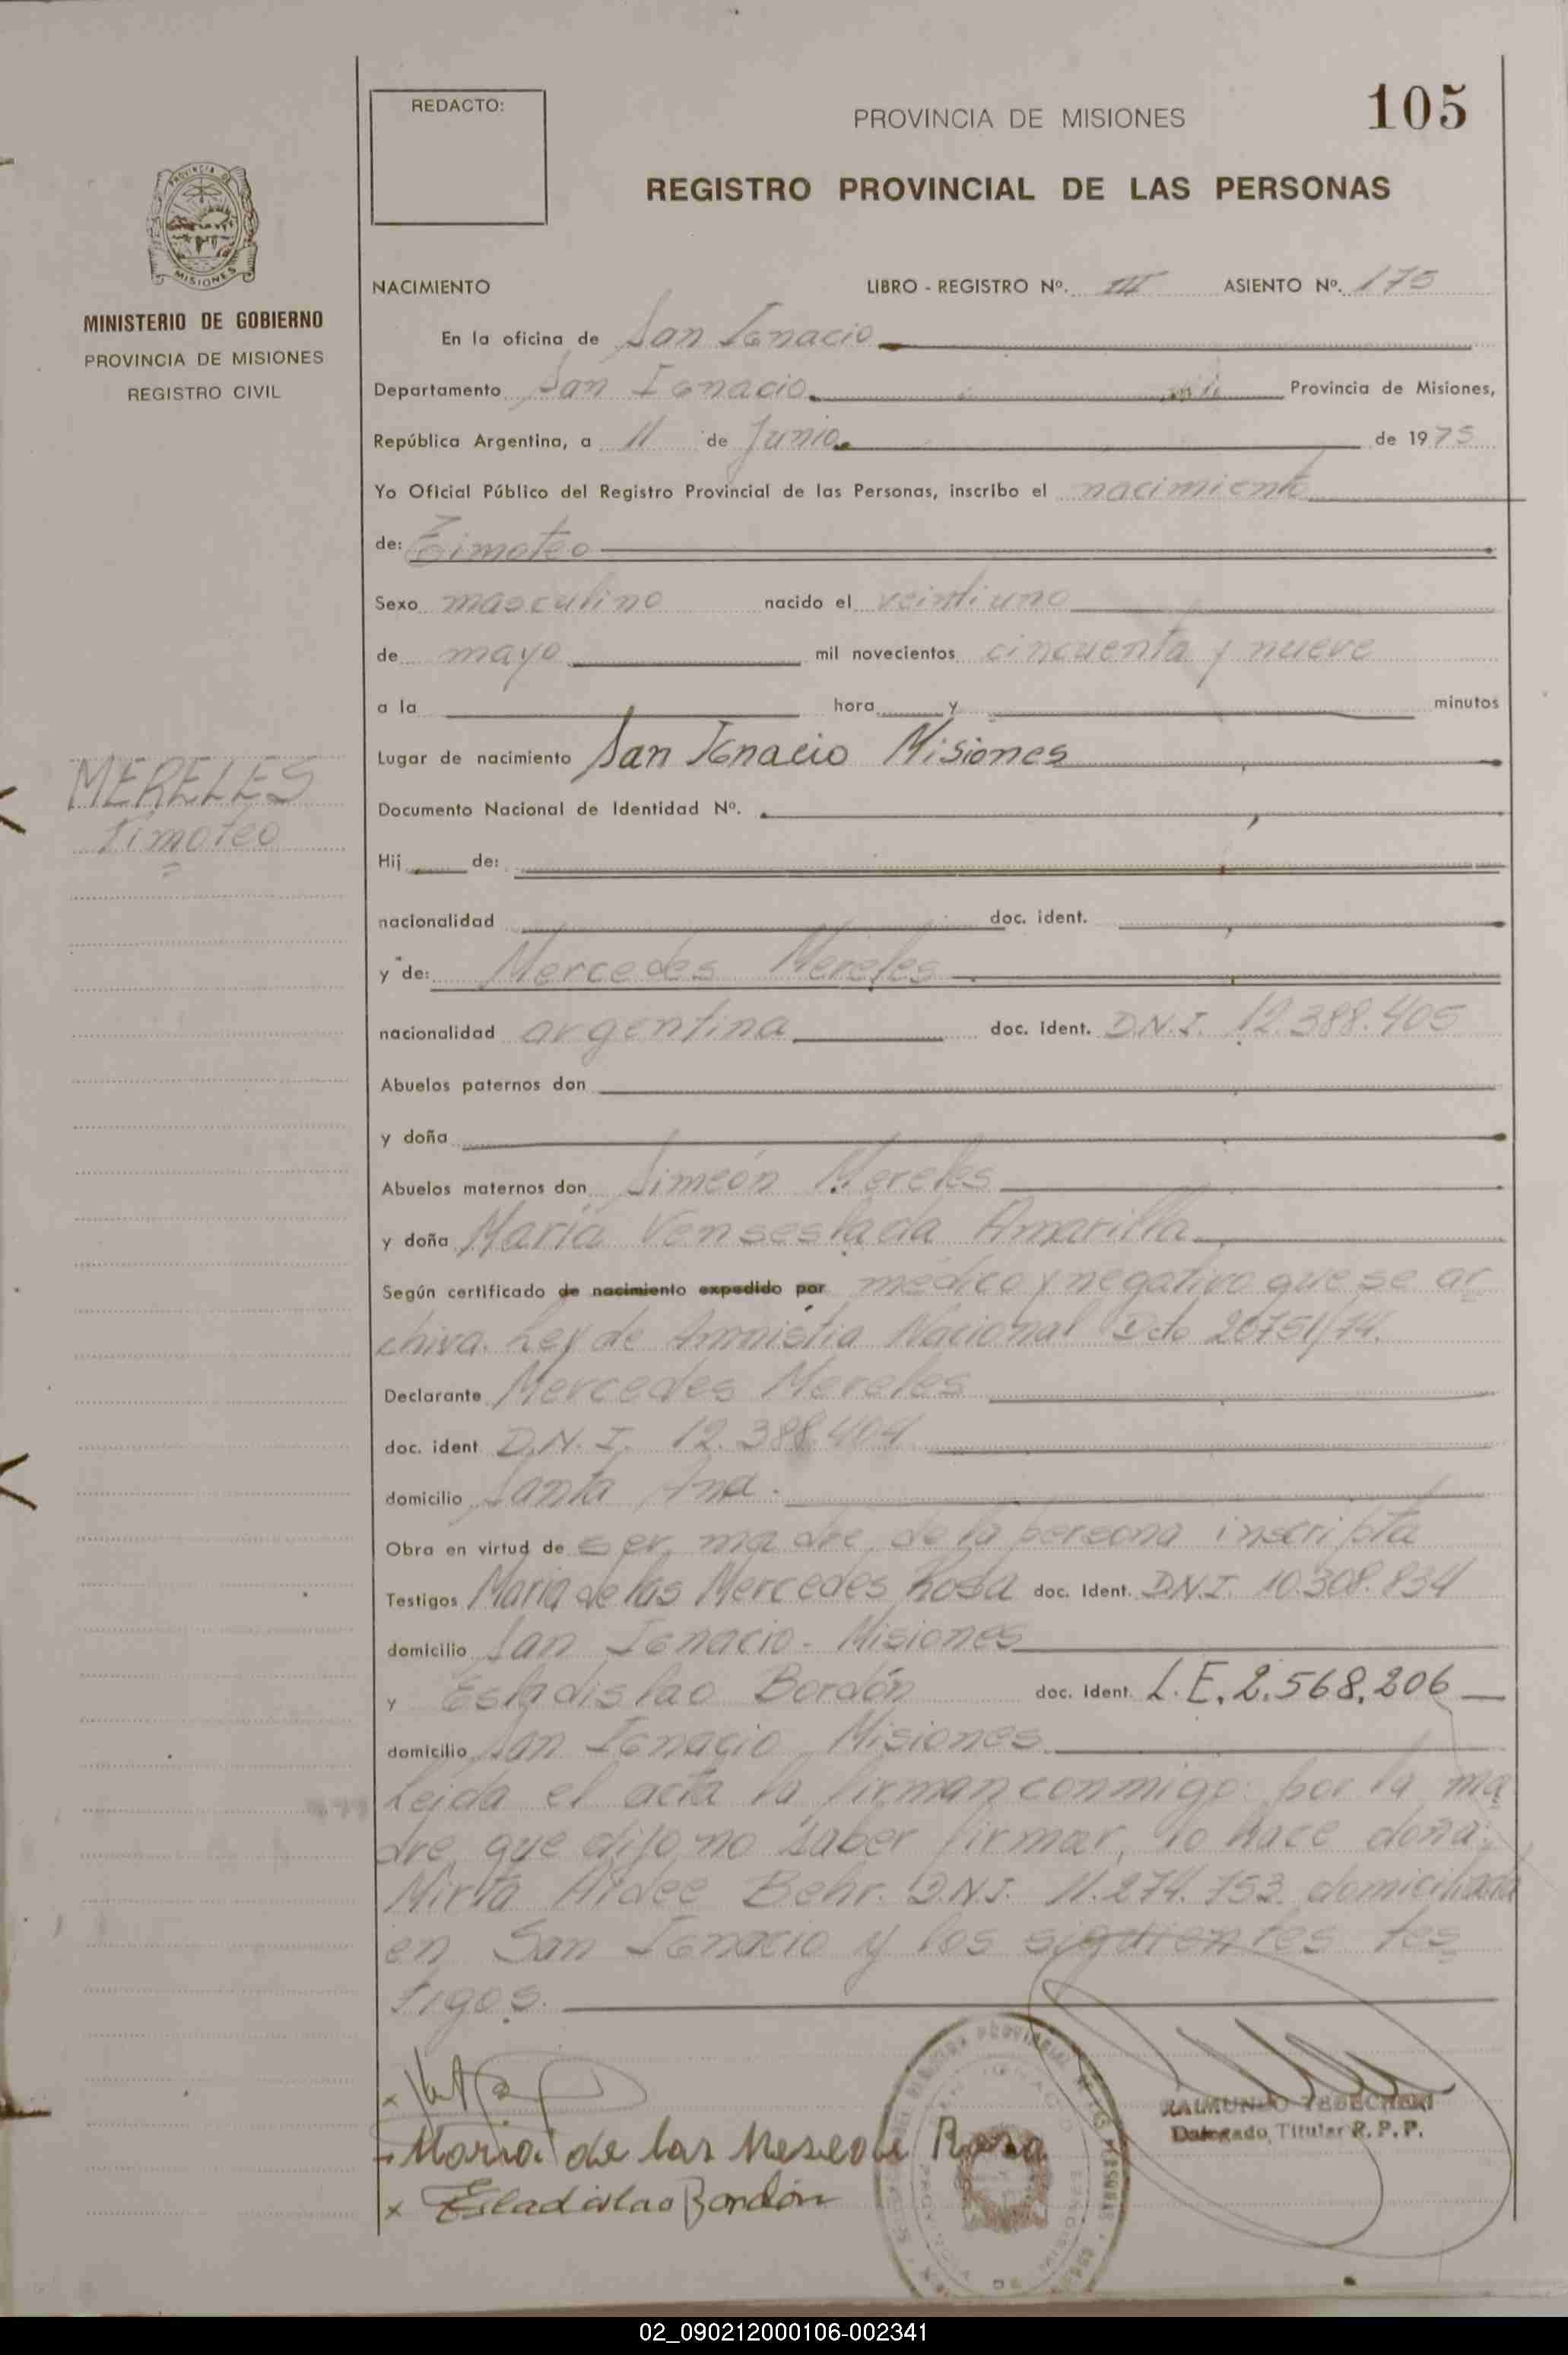 REDACTO:
PROVINCIA DE MISIONES
105
REGISTRO PROVINCIAL DE LAS PERSONAS
PROVINCIA DE
MISIONES
MINISTERIO DE GOBIERNO
PROVINCIA DE MISIONES
REGISTRO CIVIL
NACIMIENTO LIBRO - REGISTRO Nº. III ASIENTO Nº. 175
En la oficina de San Ignacio
Departamento San Ignacio Provincia de Misiones,
República Argentina, a 11 de Junio de 1975
Yo Oficial Público del Registro Provincial de las Personas, inscribo el nacimiento
de: Timoteo
Sexo masculino nacido el veintiuno
de mayo mil novecientos cincuenta y nueve
a la hora y minutos
Lugar de nacimiento San Ignacio Misiones
MERELES
Timoteo
Documento Nacional de Identidad Nº.
Hij de:
nacionalidad doc. ident.
y de: Mercedes Mereles
nacionalidad argentina doc. ident. D.N.I. 12.388.405
Abuelos paternos don
y doña
Abuelos maternos don Simeón Mereles
y doña María Venseslada Amarilla
Según certificado de nacimiento expedido por médico y negativo que se ar
chiva. Ley de Amnistia Nacional Dcto 20751/74.
Declarante Mercedes Mereles
doc. ident D.N.I. 12.388.404
domicilio Santa Ana.
Obra en virtud de ser madre de la persona inscripta
Testigos Maria de las Mercedes Rosa doc. Ident. D.N.I. 10.308.834
domicilio San Ignacio - Misiones
y Esladislao Bordón doc. ident. L.E. 2.568.206
domicilio San Ignacio Misiones
Leida el acta la firman conmigo: por la ma
dre que dijo no saber firmar, lo hace doña:
Mirta Aidee Behr. D.N.I. 11.274.753 domiciliada
en San Ignacio y los siguientes tes
tigos.
Maria de las Rosa
Esladislao Bordón
RAIMUNDO
Delegado Titular R.P.P.
02_090212000106-002341